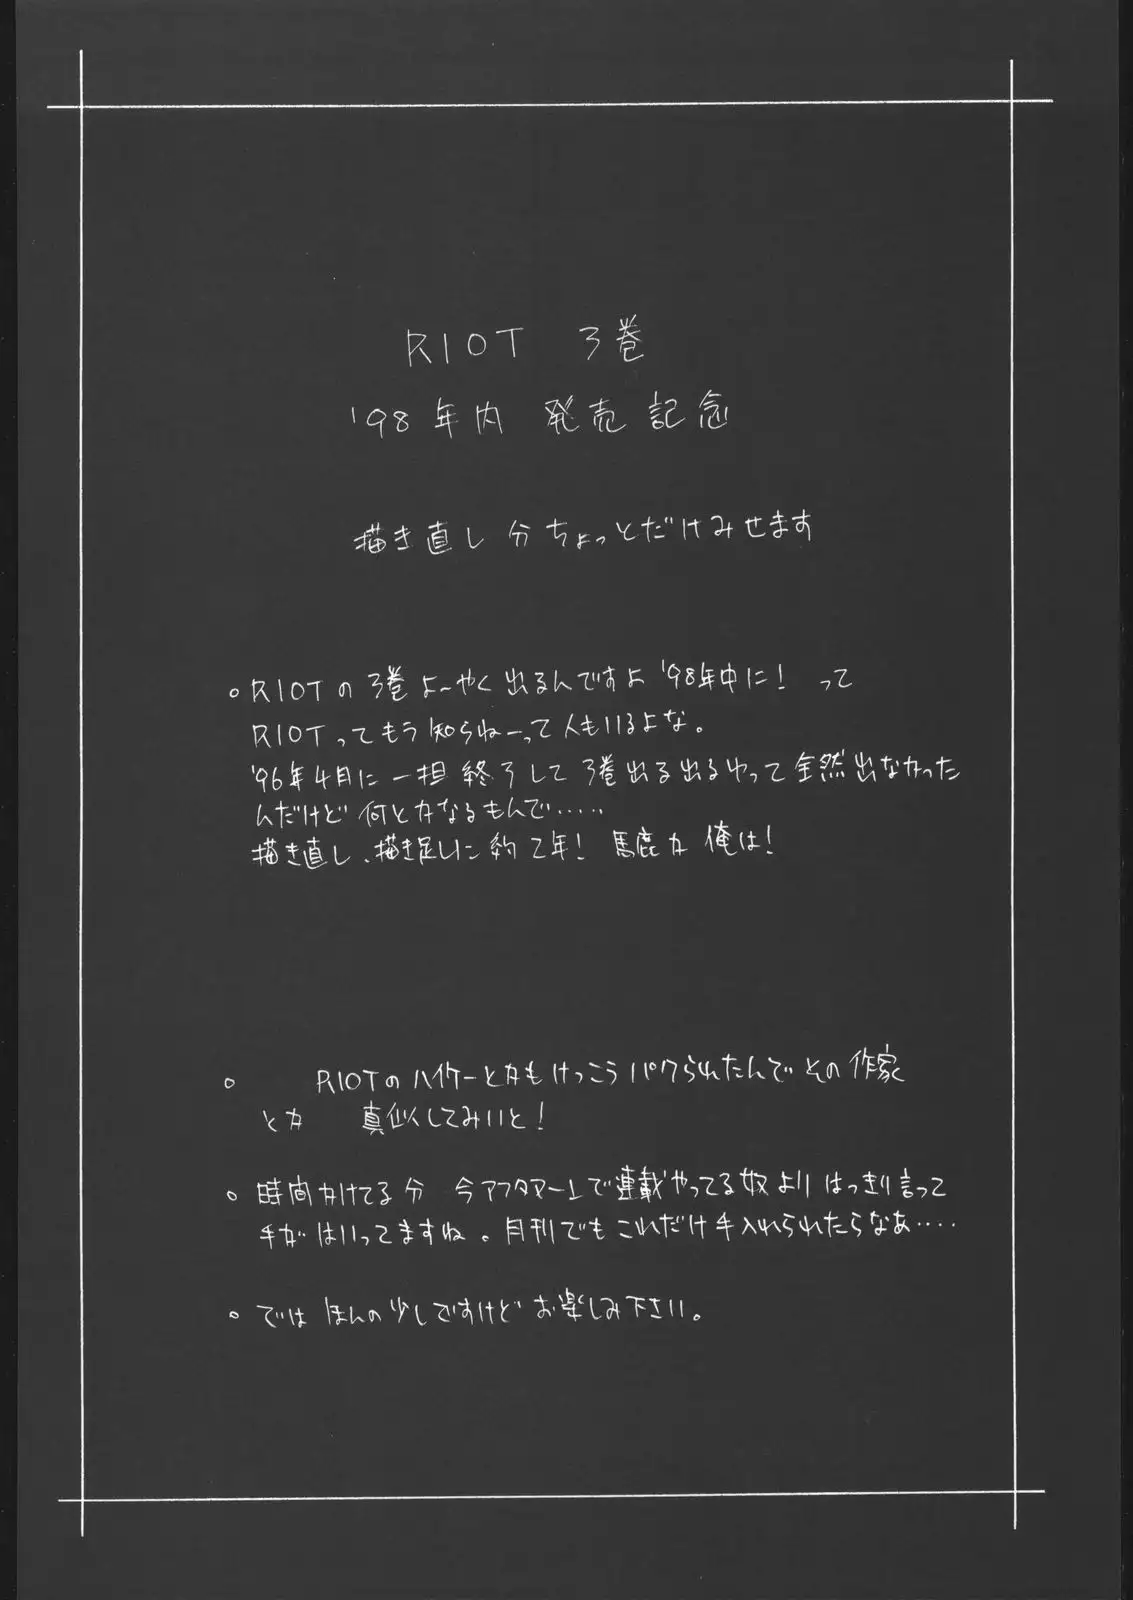 RIOT 3巻
'98年内 発売記念
描き直し分ちょっとだけみせます
○RIOTの3巻よーやく出るんですよ'98年中に! って
RIOTってもう知らねーって人もいるよな。
'96年4月に一担終了して3巻出る出るゆって全然出なかった
んだけど何とかなるもんで‥‥‥
描き直し、描き足しに約2年! 馬鹿か俺は!
○ RIOTのハイケーとかもけっこうパクられたんでその作家
とか 真似してみいと!
○時間かけてる分 今アフタヌーンで連載やってる奴よりはっきり言って
手がはいってますね。月刊でもこれだけ手入れられたらなあ‥‥
○ではほんの少しですけどお楽しみ下さい。